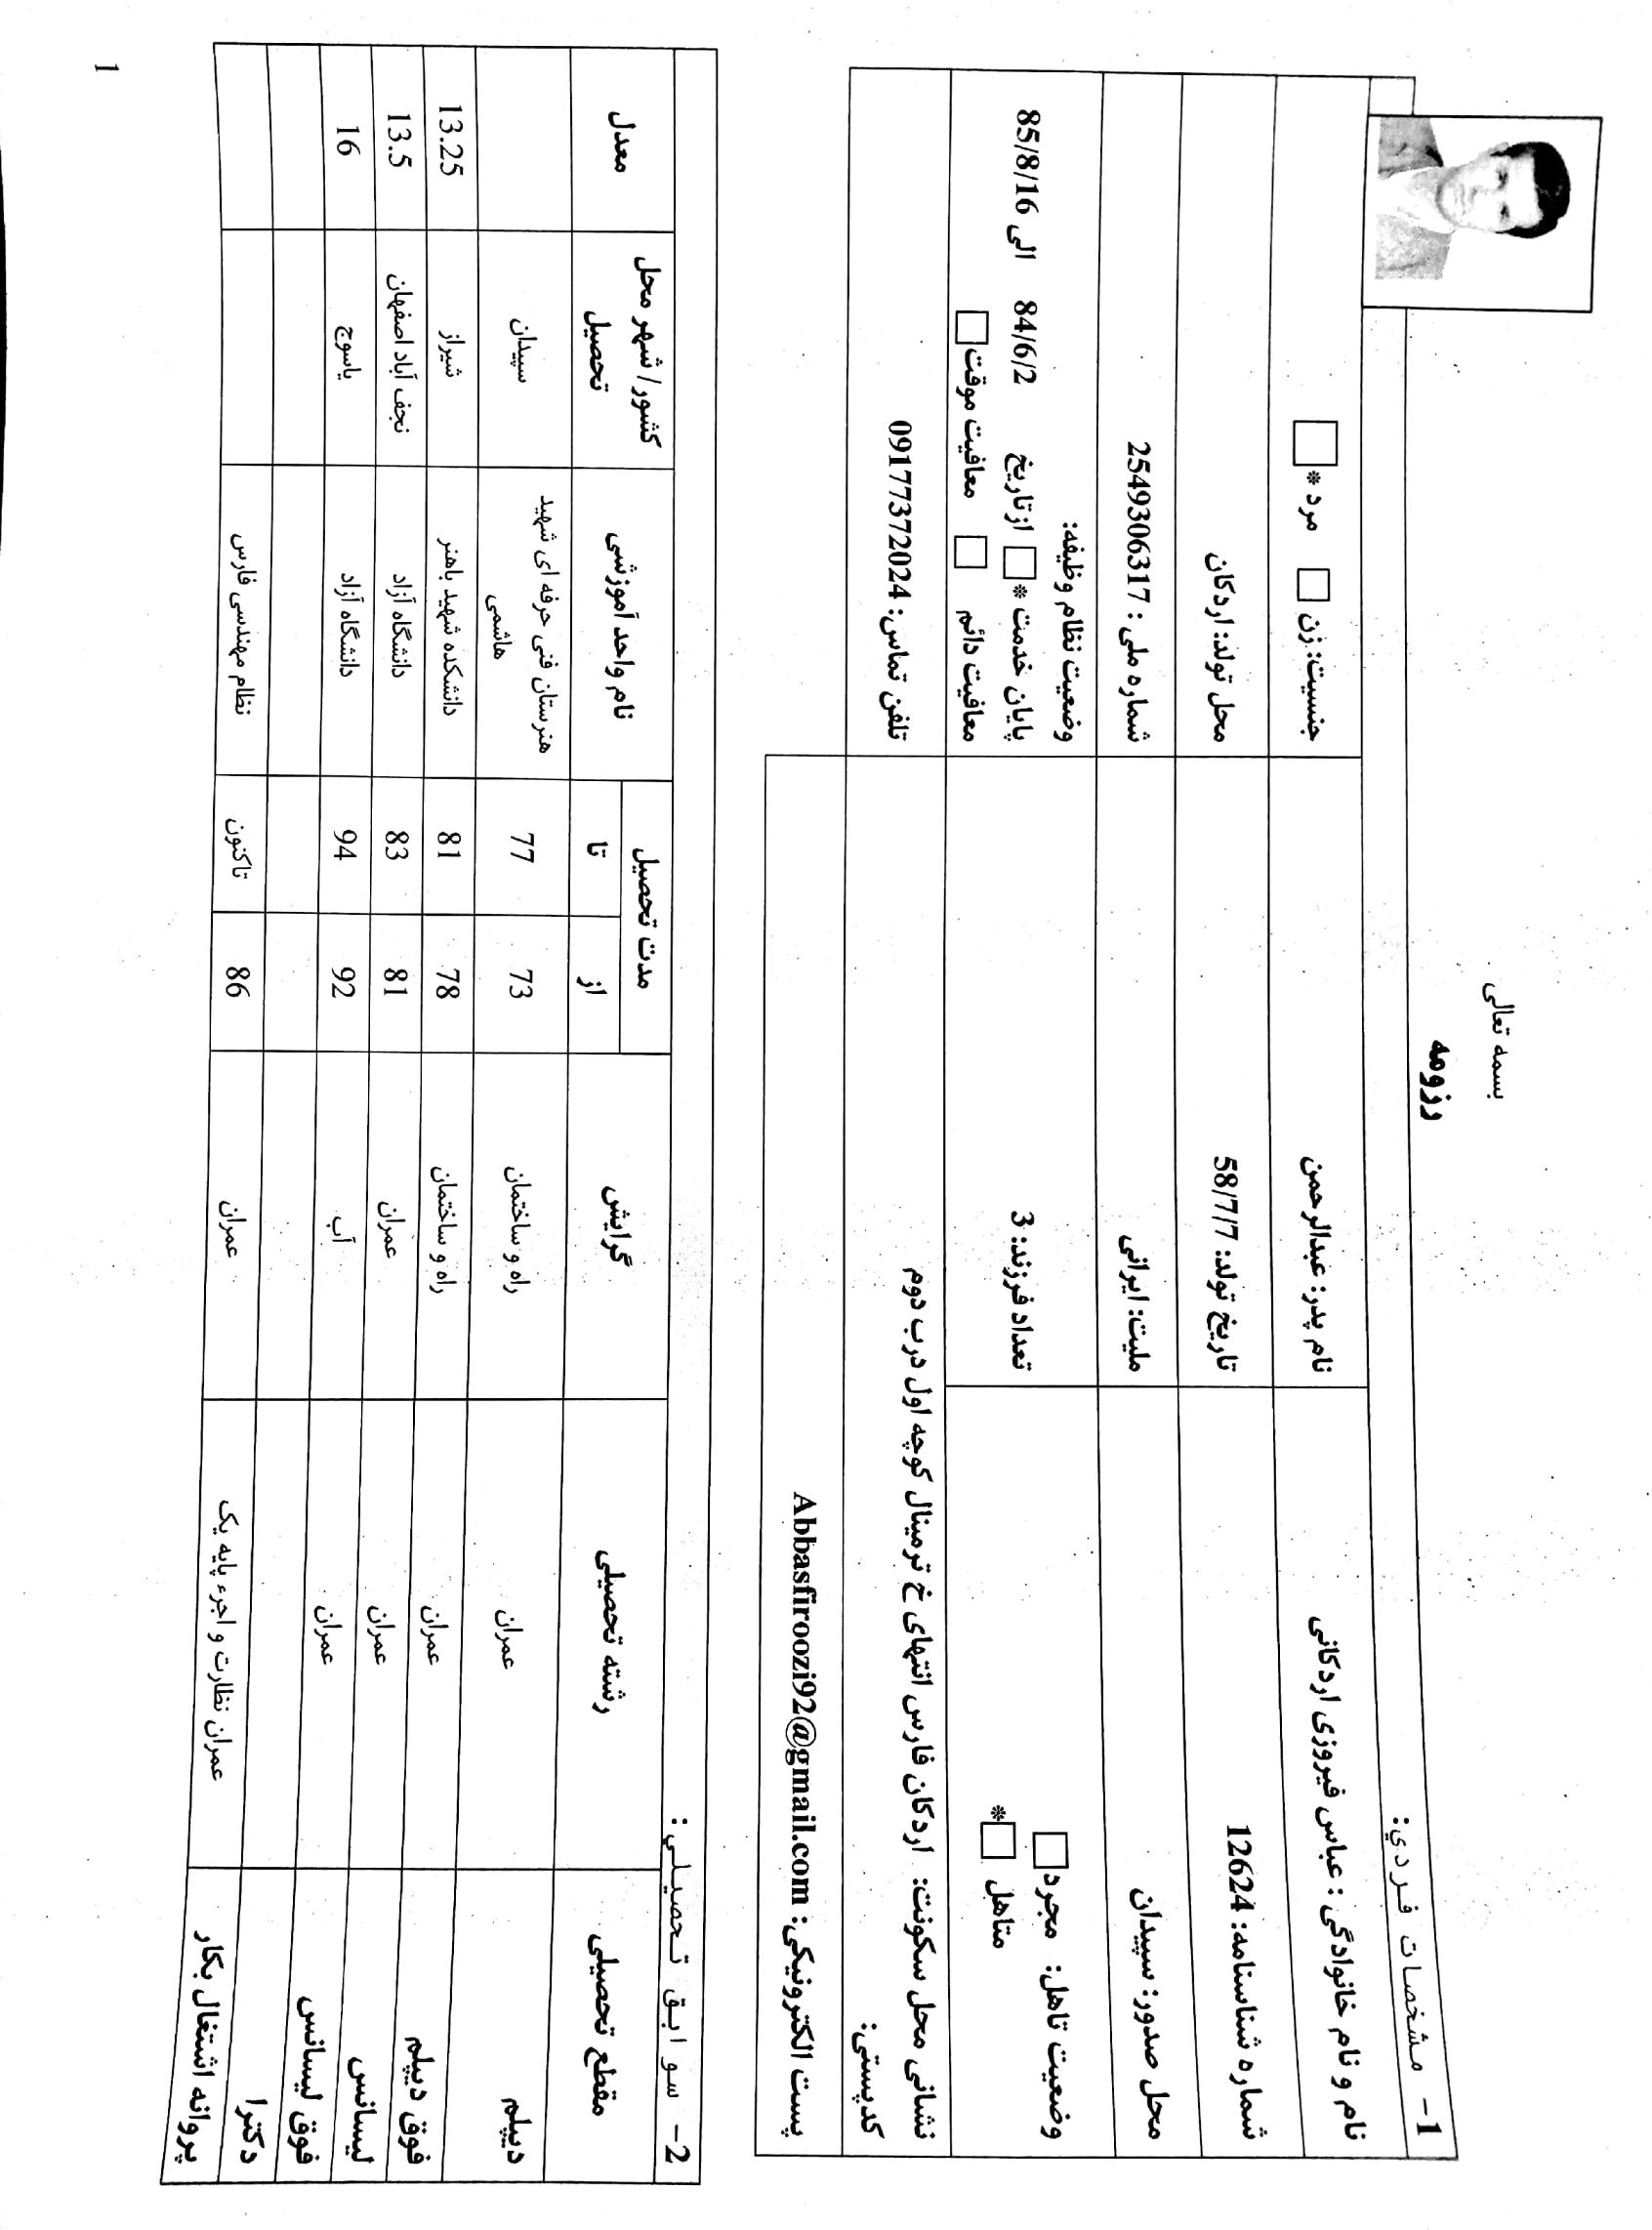 بسمه تعالی
رزومه
1- مشخصات فردي:
نام و نام خانوادگی : عباس فیروزی اردکانی
نام پدر: عبدالرحمن
جنسیت: زن □ مرد * □
شماره شناسنامه: 12624
تاریخ تولد: 58/7/7
محل تولد: اردکان
محل صدور: سپیدان
ملیت: ایرانی
شماره ملی : 2549306317
وضعیت تاهل: مجرد □
متاهل □ *
تعداد فرزند: 3
وضعیت نظام وظیفه:
پایان خدمت * □ از تاریخ 84/6/2 الی 85/8/16
معافیت دائم □ معافیت موقت □
نشانی محل سکونت: اردکان فارس انتهای خ ترمینال کوچه اول درب دوم
کدپستی:
تلفن تماس: 09177372024
پست الکترونیکی: Abbasfiroozi92@gmail.com
2- سوابق تحصیلی :
مقطع تحصیلی رشته تحصیلی گرایش مدت تحصیل نام واحد آموزشی کشور/ شهر محل تحصیل معدل
از تا
دیپلم عمران راه و ساختمان 73 77 هنرستان فنی حرفه ای شهید هاشمی سپیدان
فوق دیپلم عمران راه و ساختمان 78 81 دانشکده شهید باهنر شیراز 13.25
لیسانس عمران عمران 81 83 دانشگاه آزاد نجف آباد اصفهان 13.5
فوق لیسانس عمران آب 92 94 دانشگاه آزاد یاسوج 16
دکترا
پروانه اشتغال بکار عمران نظارت و اجرء پایه یک عمران 86 تاکنون نظام مهندسی فارس
1